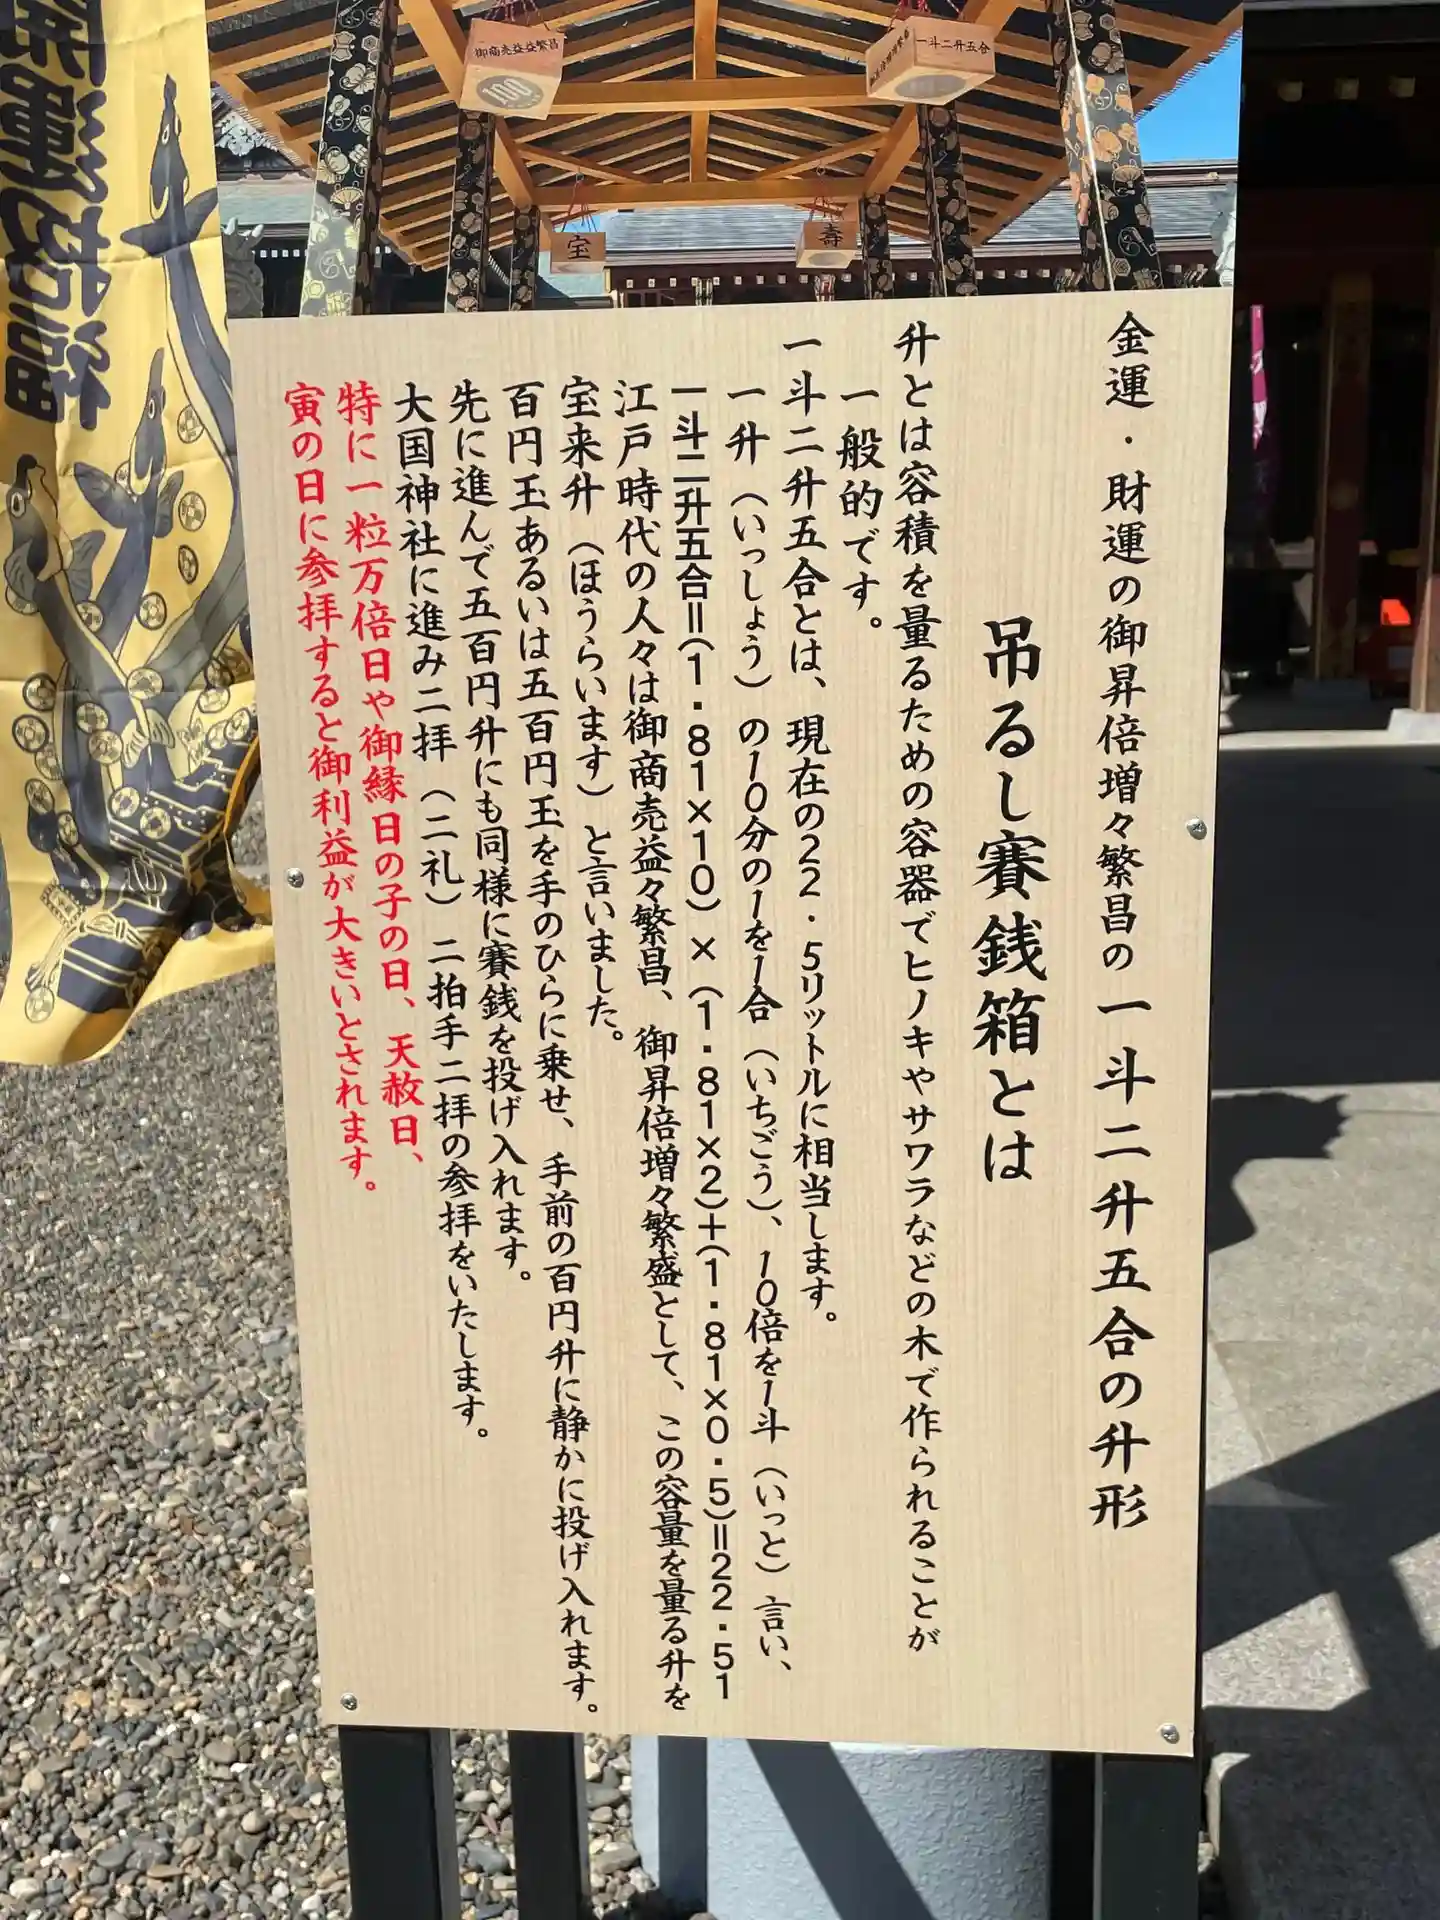 金運・財運の御昇倍増々繁昌の一斗二升五合の升形
吊るし賽銭箱とは
升とは容積を量るための容器でヒノキやサワラなどの木で作られることが
一般的です。
一斗二升五合とは、現在の22.5リットルに相当します。
一升(いっしょう)の10分の1を1合(いちごう)、10倍を1斗(いっと)言い、
一斗二升五合=(1.81×10)×(1.81×2)+(1.81×0.5)=22.51
江戸時代の人々は御商売益々繁昌、御昇倍増々繁盛として、この容量を量る升を
宝来升(ほうらいます)と言いました。
百円玉あるいは五百円玉を手のひらに乗せ、手前の百円升に静かに投げ入れます。
先に進んで五百円升にも同様に賽銭を投げ入れます。
大国神社に進み二拝(二礼)二拍手二拝の参拝をいたします。
特に一粒万倍日や御縁日の子の日、天赦日、
寅の日に参拝すると御利益が大きいとされます。
御商売益益繁昌
100
一斗二升五合
宝
壽
開運招福